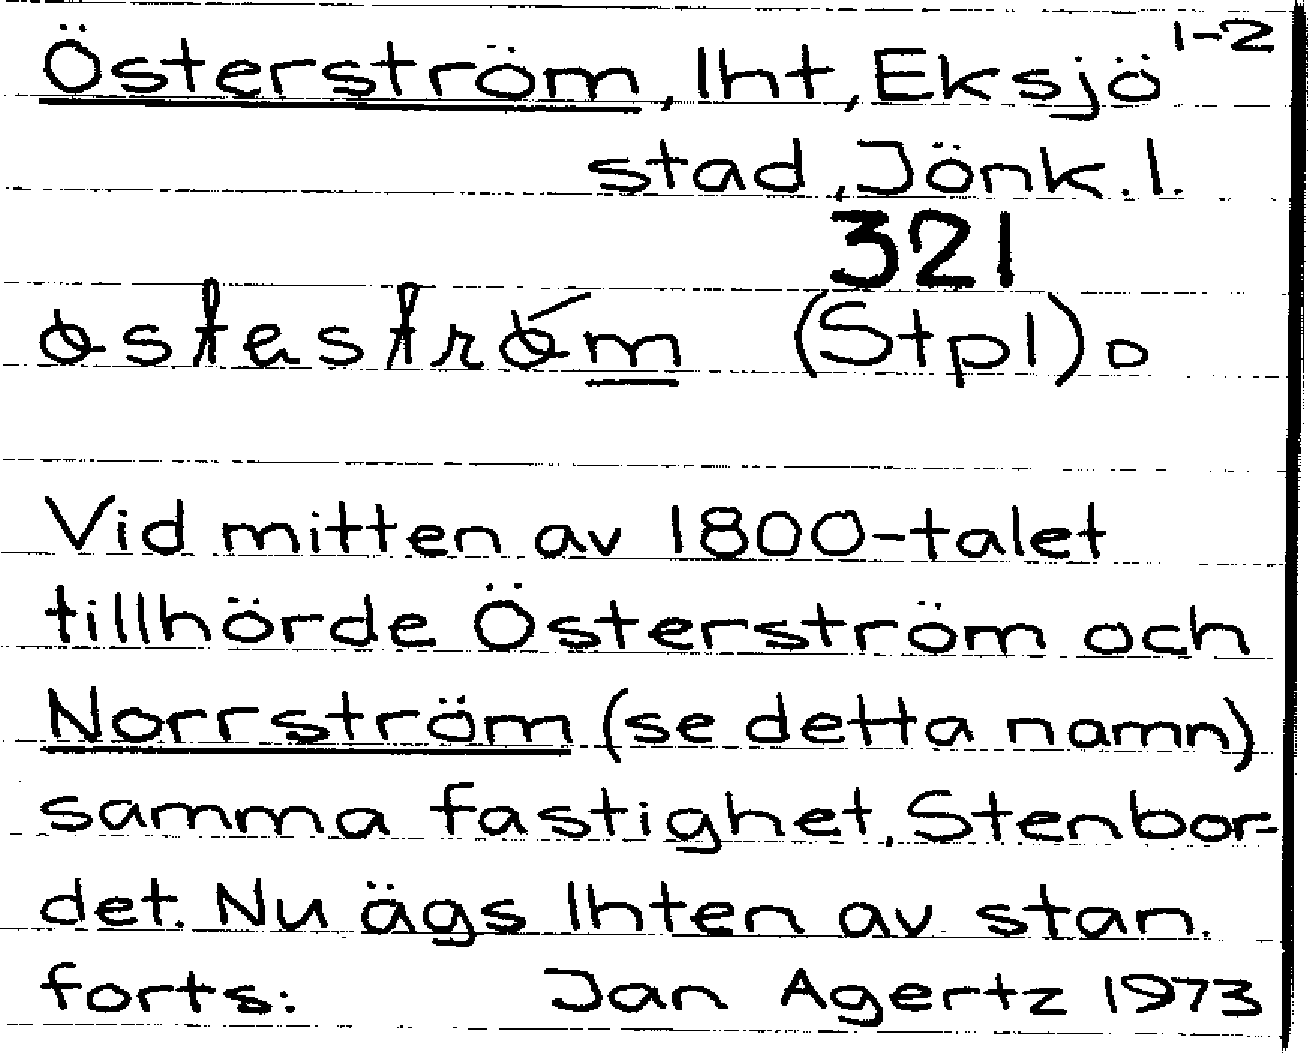 Österström, lht, Eksjö 1-2
stad, Jönk. l.
321
(Stpl)o
Vid mitten av 1800-talet
tillhörde Österström och
Norrström (se detta namn)
samma fastighet, Stenbor-
det. Nu ägs lhten av stan.
forts: Jan Agertz 1973